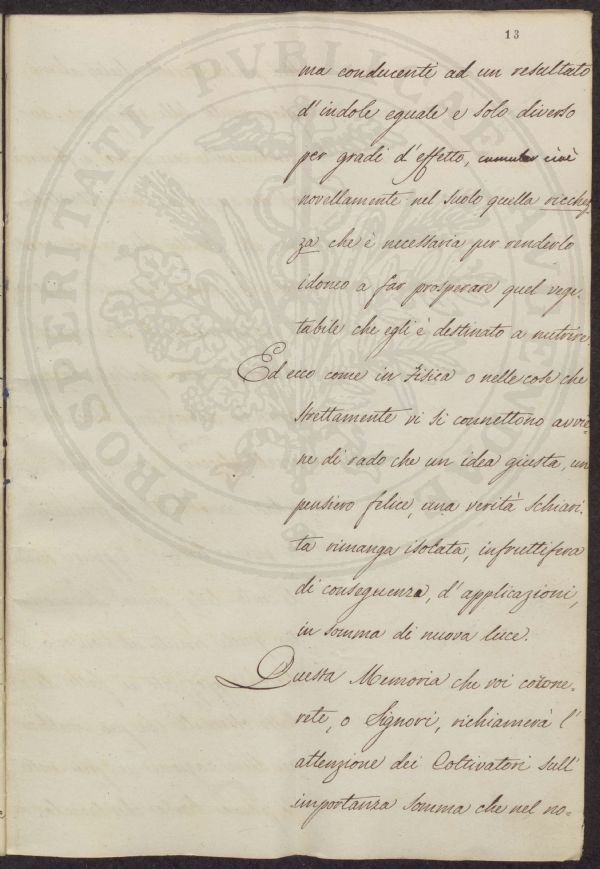 13
ma conducente ad un resultato
d'indole eguale e solo diverso
per gradi d'effetto, cumular cioè
novellamente nel suolo quella ricchez,
za che è necessaria per renderlo
idoneo a far prosperare quel vege,
tabile che egli è destinato a nutrire
Ed ecco come in Fisica o nelle cose che
strettamente vi si connettono avvie,
ne di rado che un idea giusta, un
pensiero felice, una verità schiari,
ta rimanga isolata, infruttifera
di conseguenza, d'applicazioni,
in somma di nuova luce.
Questa Memoria che voi corone,
rete, o Signori, richiamerà l'
attenzione dei Coltivatori sull'
importanza somma che nel no=
PROSPERITATI PVBLICAE